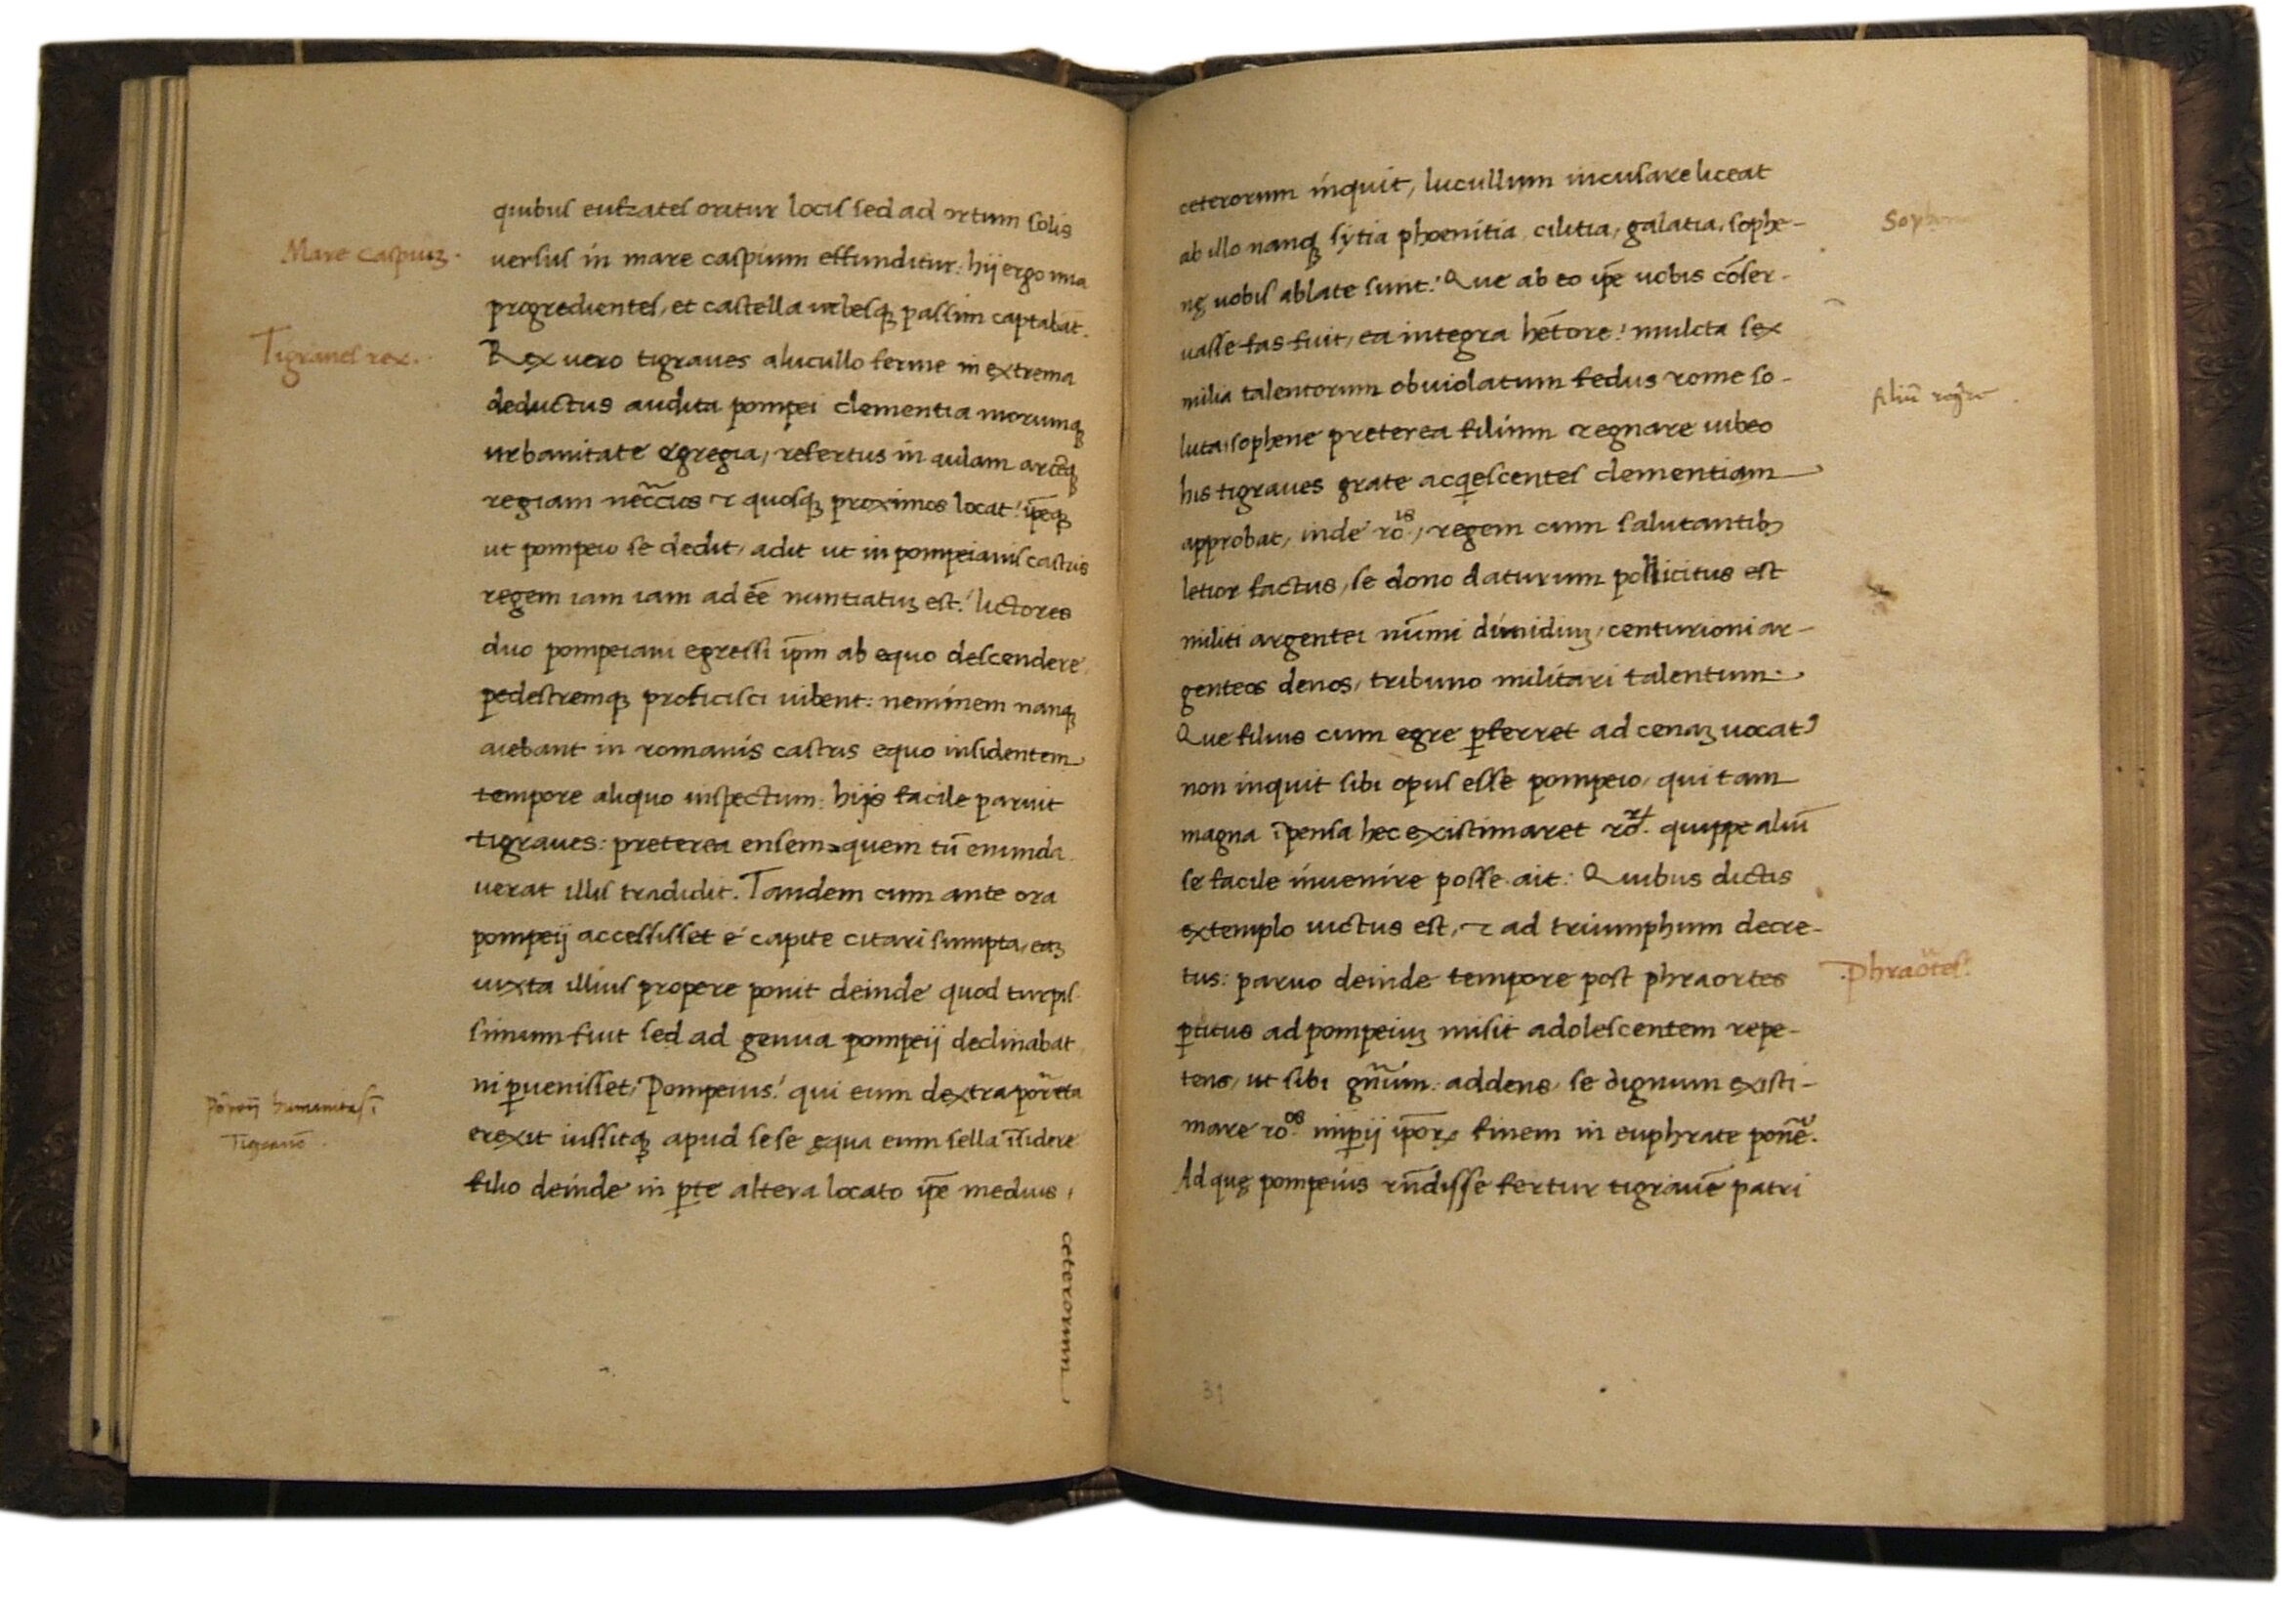 quibus eufrates oritur locis sed ad ortum solis
Mare caspiuʒ.
uersus in mare caspium effunditur: hij ergo una
progredientes, et castella urbesqʒ passim captabāt.
Tigranes rex.
Rex uero tigraues alucullo ferme in extrema
deductus audita pompei clementia morumqʒ
urbanitate egregia, refertus in aulam arcēqʒ
regiam neccīos et quosqʒ proximos locat: ip̄eqʒ
ut pompeio se dedit, adit ut in pompeianis castris
regem iam iam ad eē nuntiatuʒ est: lictores
duo pompeiani egressi ip̄m ab equo descendere
pedestremqʒ proficisci iubent: neminem nanqʒ
aiebant in romanis castris equo insidentem
tempore aliquo inspectum: hijs facile paruit
tigraues: preterea ensem quem tū enunda
uerat illis tradidit. Tandem cum ante ora
pompeij accessisset e capite citari sumpta, eaʒ
iuxta illius propere ponit deinde quod turpis
simum fuit sed ad genua pompeij declinabat
ni ꝑuenisset, Pompeius: qui eum dextra porrēta
humanitas ī
erexit iussitqʒ apud sese equa eum sella īsidere
filio deinde in ꝑte altera locato ip̄e medius,
ceterorum
ceterorum inquit, lucullum incusare liceat
Soph
ab illo nanqʒ sytia phoenitia, cilitia, galatia, sophe-
nę uobis ablate sunt: Que ab eo ip̄e uobis cōser-
uasse fas fuit, ea integra hētore: mulcta sex
milia talentorum obuiolatum fedus rome so-
filiū
luta, sophene preterea filium regnare iubeo
his tigraues grate acqescentes clementiam
approbat, inde ro^is, regem cum salutantibʒ
letior factus, se dono daturum pollicitus est
militi argentei nūmi dimidiuʒ, centurioni ar-
genteos denos, tribuno militari talentum.
Que filius cum egre ꝑferret ad cenaʒ uocatꝰ
non inquit sibi opus esse pompeio, qui tam
magna īpensa hec existimaret roꝝ. quippe aliū
se facile inuenire posse ait: Quibus dictis
extemplo uictus est, et ad triumphum decre-
tus: paruo deinde tempore post phraortes
Phraortes.
ꝑtitus ad pompeiuʒ misit adolescentem repe-
tens, ut sibi gn̄um: addens, se dignum existi-
mare ro^os imꝑij ip̄oꝝ finem in euphrate ponē.
Ad quę pompeius rn̄disse fertur tigrauē patri
31